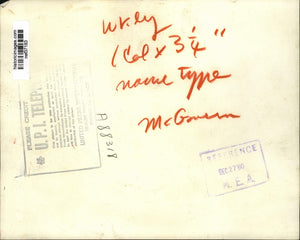 wkly
1 Col x 3 1/4 "
name type
McGovern
PLEASE CREDIT
U.P.I. TELEP
A88318
REFERENCE
DEC 27 '80
N.E.A.